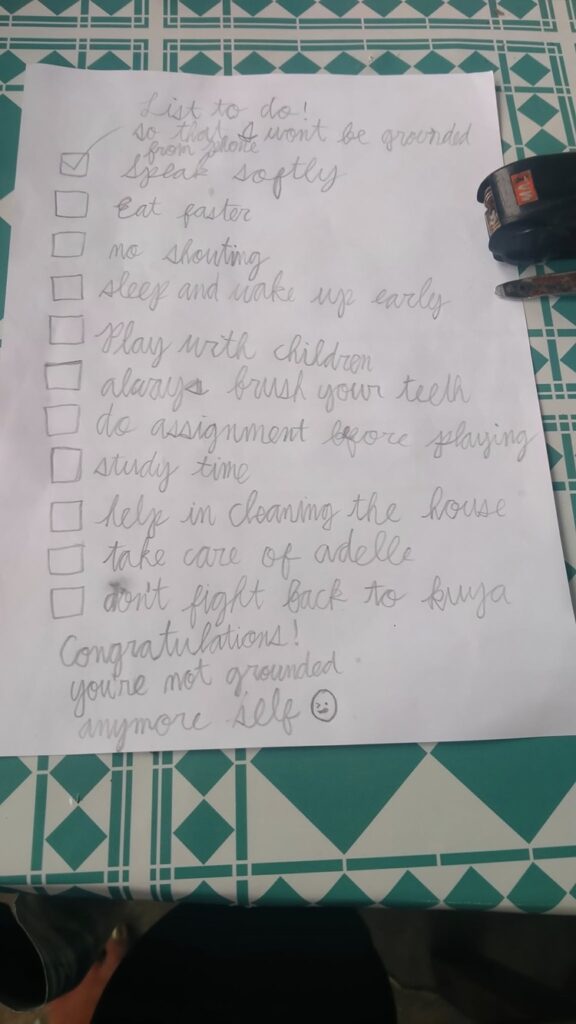 List to do!
so that I won't be grounded
from phone
Speak softly
Eat faster
no shouting
sleep and wake up early
Play with children
always brush your teeth
do assignment before playing
study time
help in cleaning the house
take care of adelle
don't fight back to kuya
Congratulations!
you're not grounded
anymore self